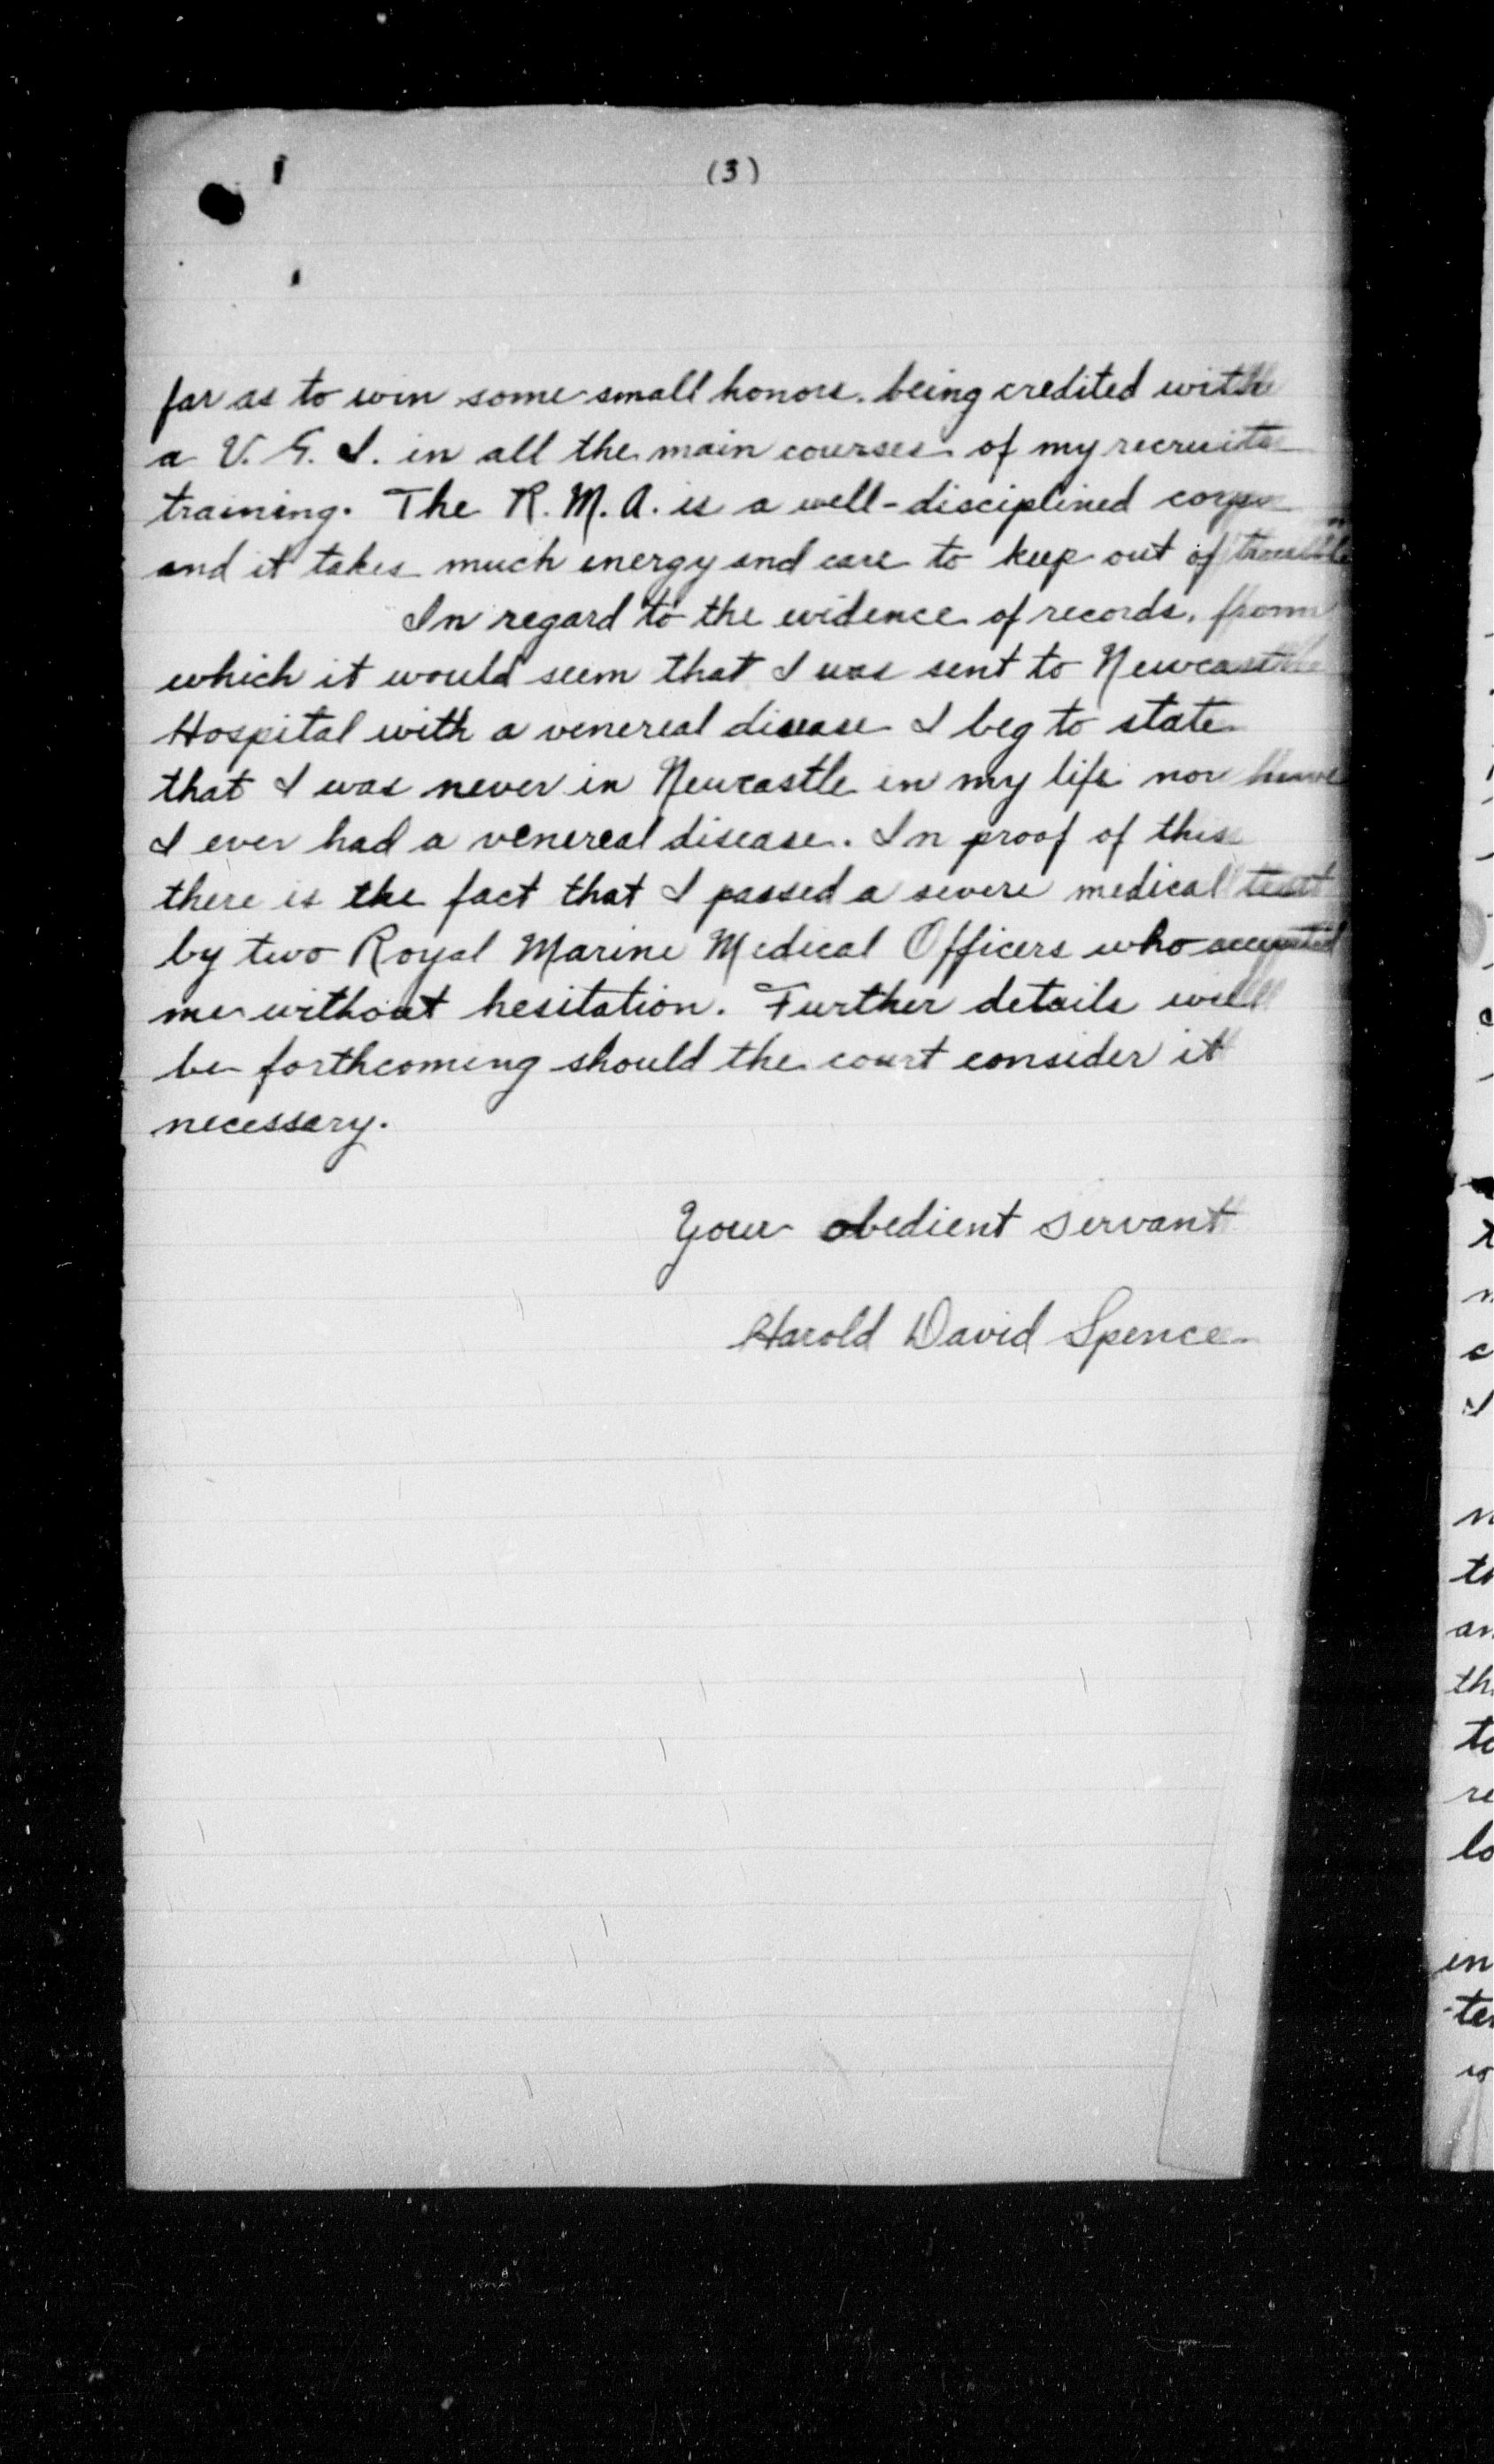 (3)
far as to win some small honors. being credited with
a V. G. I. in all the main courses of my recruits
training. The R. M. A. is a well-disciplined corps
and it takes much energy and care to keep out of trouble
In regard to the evidence of records, from
which it would seem that I was sent to Newcastle
Hospital with a venereal disease I beg to state
that I was never in Newcastle in my life nor have
I ever had a venereal disease. In proof of this
there is the fact that I passed a severe medical test
by two Royal Marine Medical Officers who accepted
me without hesitation. Further details will
be forthcoming should the court consider it
necessary.
Your obedient servant
Harold David Spence